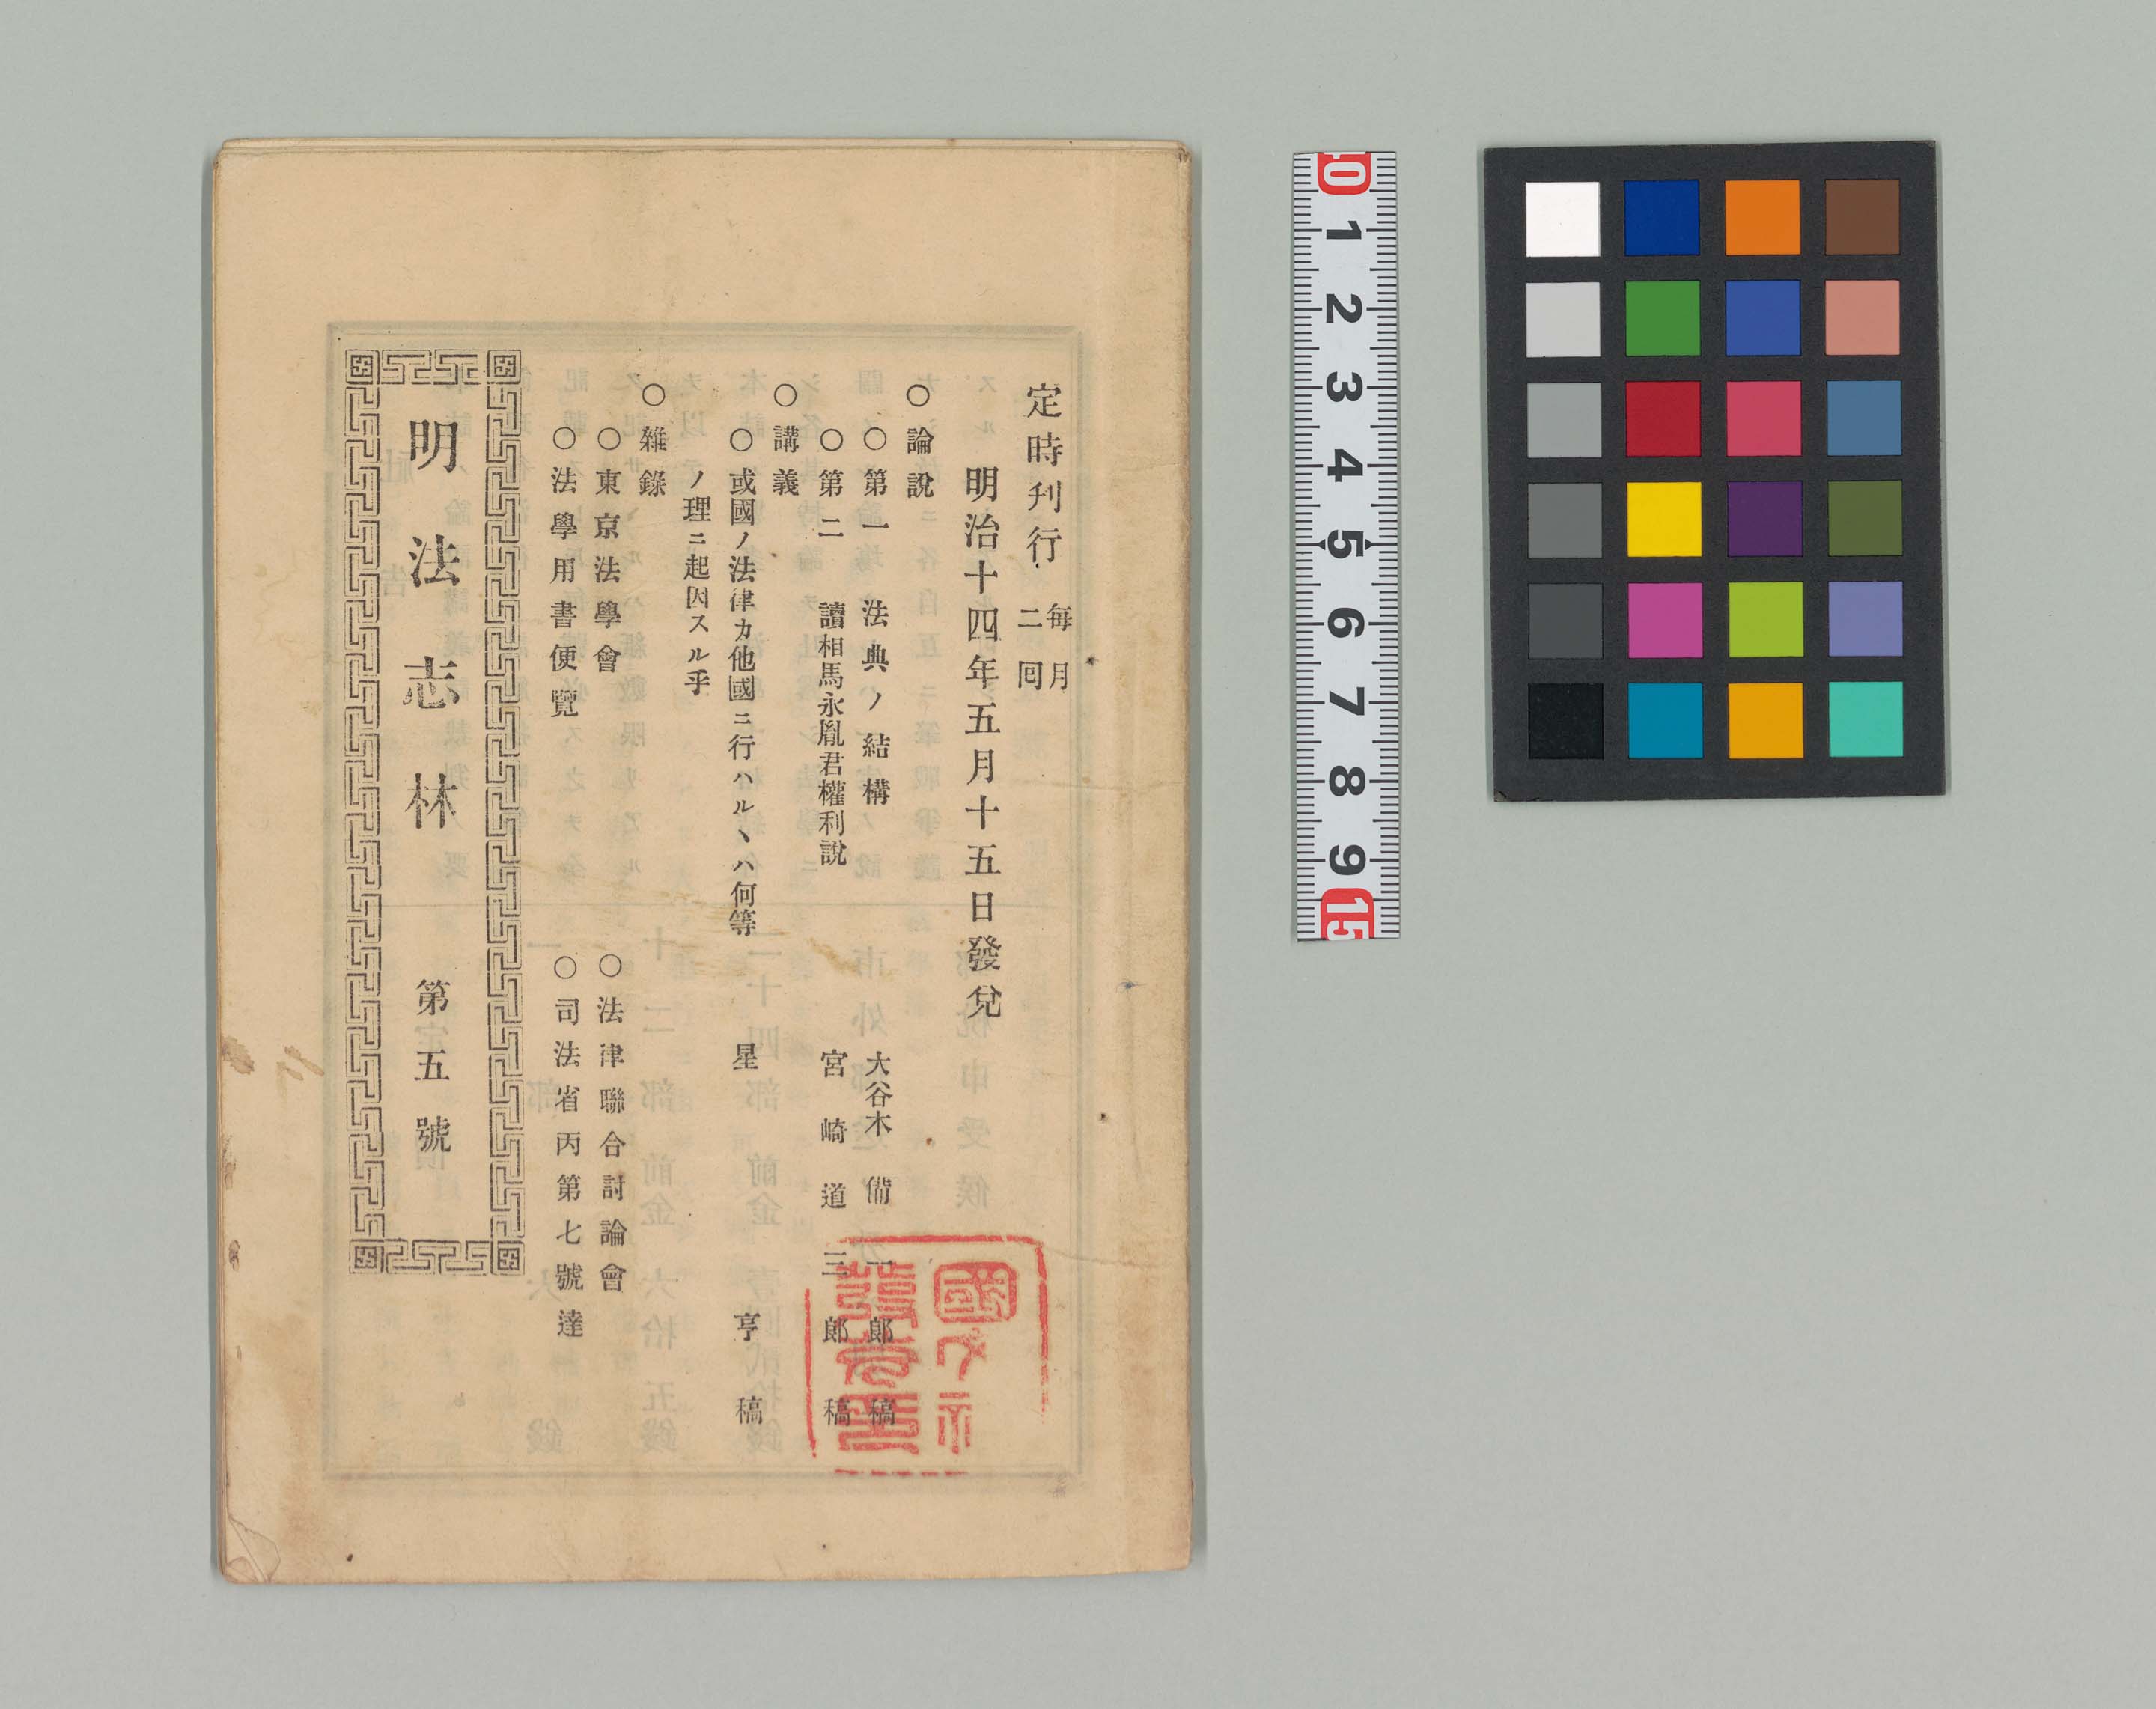 定時刋行
毎月
二囘
明治十四年五月十五日發兌
○論說
○第一 法典ノ結構 大谷木備一郞稿
○第二 讀相馬永胤君權利說 宮崎道三郞稿
○講義
○或國ノ法律カ他國ニ行ハルヽハ何等 星亨稿
ノ理ニ起因スル乎
○雜錄
○東京法學會 ○法律聯合討論會
○法學用書便覽 ○司法省丙第七號達
明法志林 第五號
10 1 2 3 4 5 6 7 8 9 15